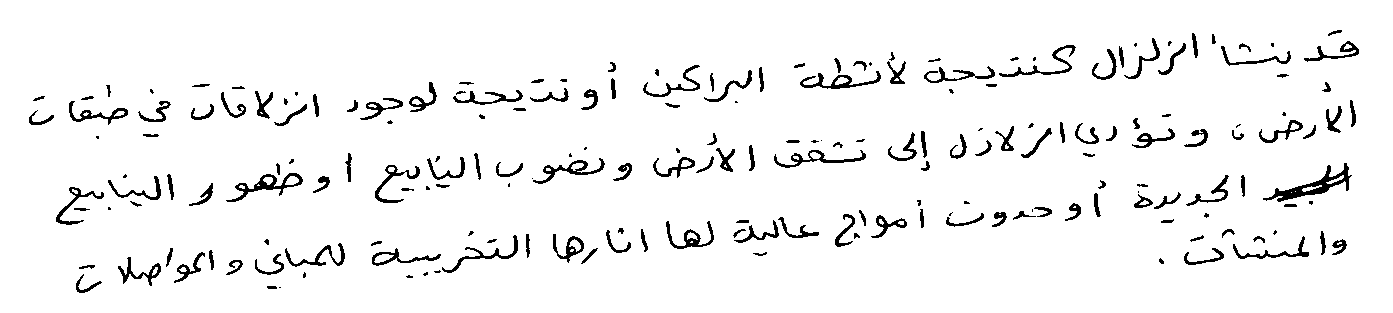 قد ينشأ الزلزال كنتيجة لأنشطة البراكين أو نتيجة لوجود انزلاقات في طبقات
الأرض، وتؤدي الزلازل إلى تشقق الأرض ونضوب الينابيع أو ظهور الينابيع
الجديدة أو حدوث أمواج عالية لها اثارها التخريبية للمباني والمواصلات
والمنشآت.